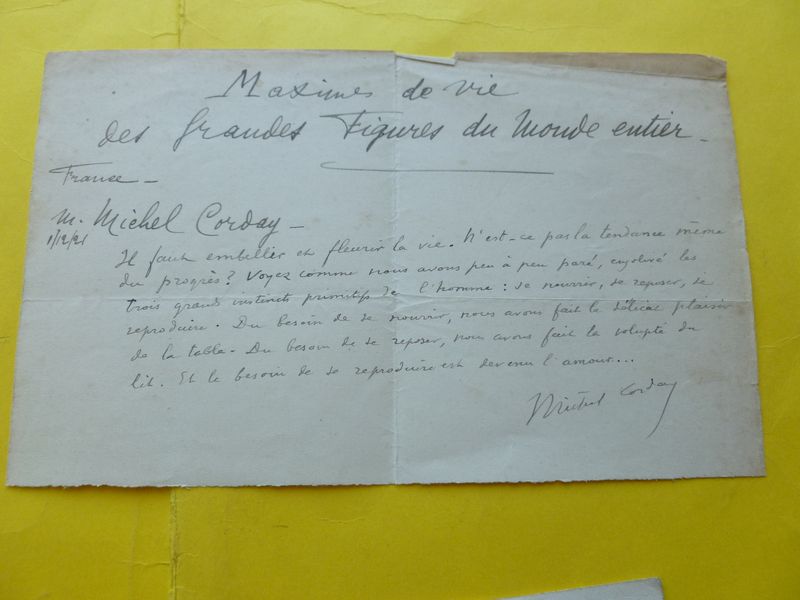 Maximes de vie
des Grandes Figures du Monde entier -
France -
M. Michel Corday -
1/12/21
Il faut embellir et fleurir la vie. N'est-ce pas la tendance même
du progrès? Voyez comme nous avons peu à peu paré, enjolivé les
trois grands instincts primitifs de l'homme : se nourrir, se reposer, se
reproduire. Du besoin de se nourrir, nous avons fait le délicat plaisir
de la table. Du besoin de se reposer, nous avons fait la volupté du
lit. Et le besoin de se reproduire est devenu l'amour...
Michel Corday